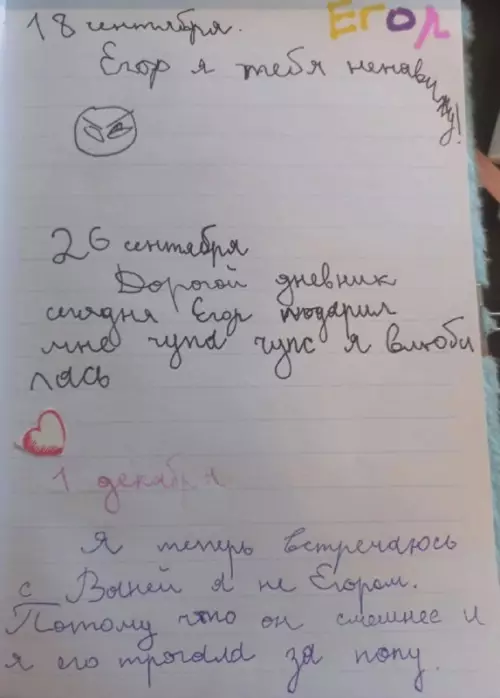 Егор
18 сентября.
Егор я тебя ненавижу!
26 сентября
Дорогой дневник
сегодня Егор подарил
мне чупа чупс я влюби
лась
1 декабря
Я теперь встречаюсь
с Ваней я не Егором.
Потому что он смешнее и
я его трогала за попу.